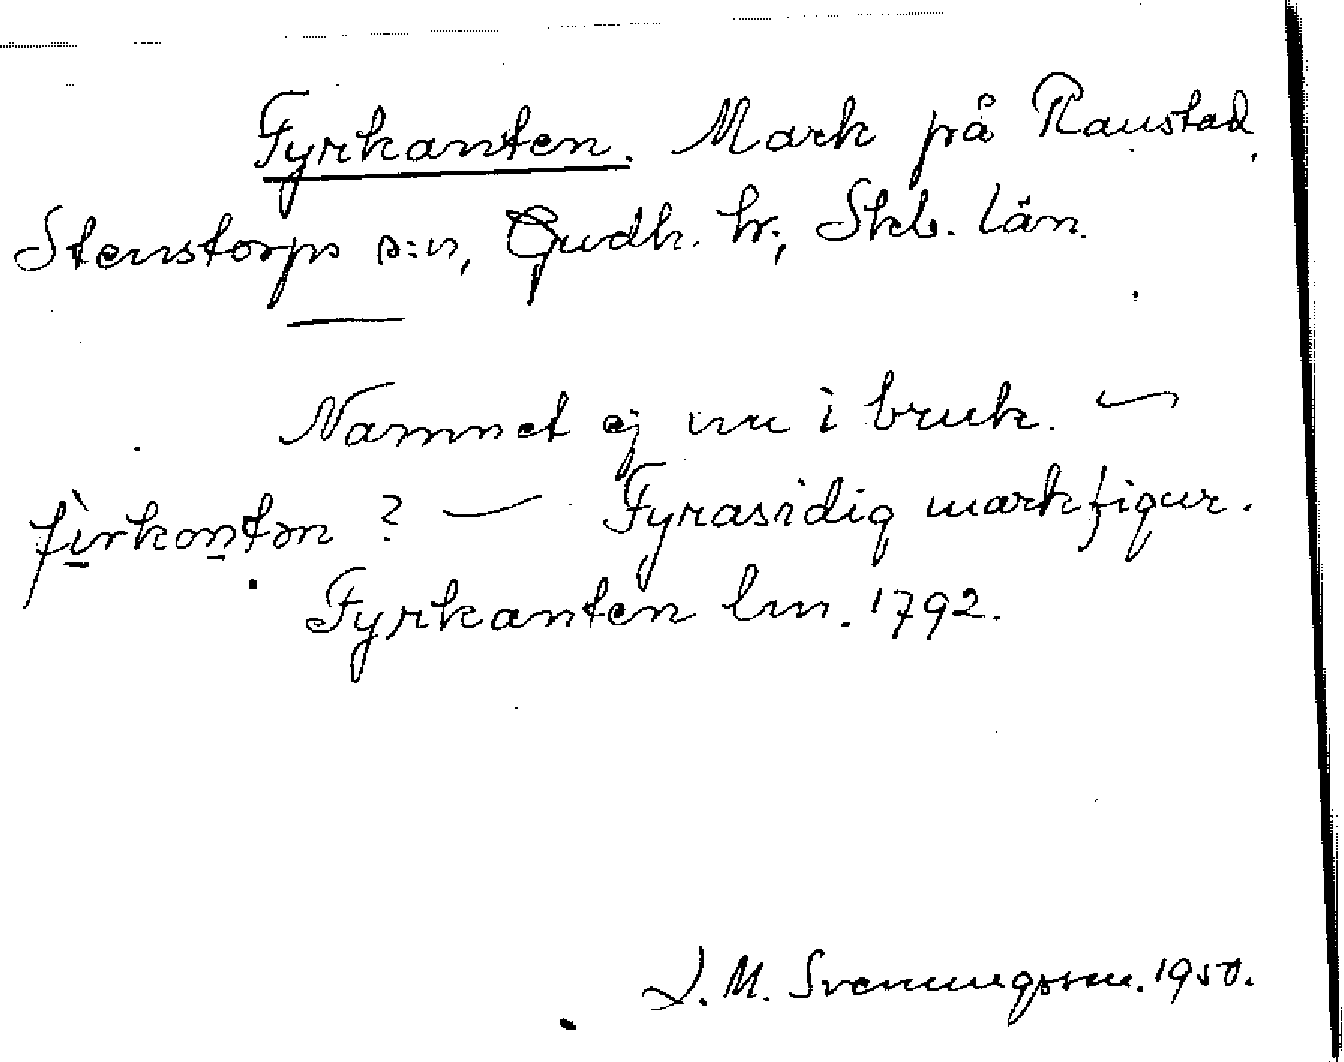 Fyrkanten. Mark på Raustad,
Stenstorps s:n, Gudh. hr., Skb. län.
Namnet ej nu i bruk. —
firkontən ? — Fyrasidig markfigur.
Fyrkanten lm. 1792.
J. M. Svenningsson. 1950.